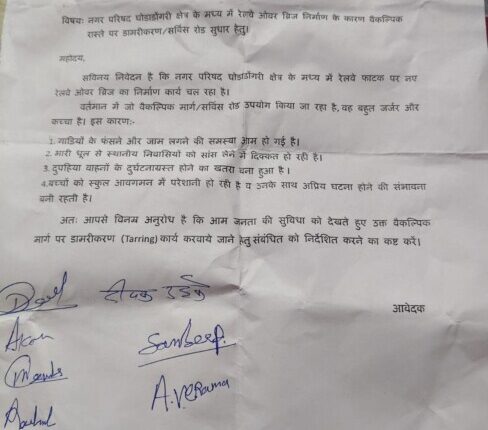 विषयः नगर परिषद घोडाडोंगरी क्षेत्र के मध्य में रेलवे ओवर ब्रिज निर्माण के कारण वैकल्पिक
रास्ते पर डामरीकरण/सर्विस रोड सुधार हेतु।
महोदय,
सविनय निवेदन है कि नगर परिषद घोडाडोंगरी क्षेत्र के मध्य में रेलवे फाटक पर नए
रेलवे ओवर ब्रिज का निर्माण कार्य चल रहा है।
वर्तमान में जो वैकल्पिक मार्ग/सर्विस रोड उपयोग किया जा रहा है, वह बहुत जर्जर और
कच्चा है। इस कारण:-
1. गाडियों के फंसने और जाम लगने की समस्या आम हो गई है।
2. भारी धूल से स्थानीय निवासियों को सांस लेने में दिक्कत हो रही है।
3. दुपहिया वाहनों के दुर्घटनाग्रस्त होने का खतरा बना हुआ है ।
4.बच्चों को स्कुल आवागमन में परेशानी हो रही है व उनके साथ अप्रिय घटना होने की संभावना
बनी रहती है।
अतः आपसे विनम्र अनुरोध है कि आम जनता की सुविधा को देखते हुए उक्त वैकल्पिक
मार्ग पर डामरीकरण (Tarring) कार्य करवाये जाने हेतु संबंधित को निर्देशित करने का कष्ट करें।
दीपक उइके
आवेदक
Sandeep.
A.Verma